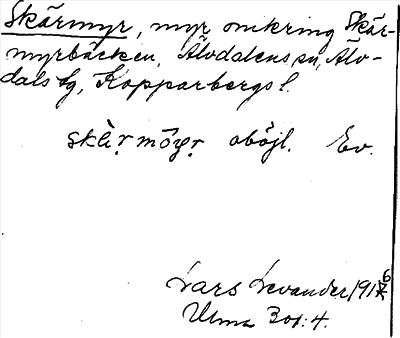 Skärmyr, myr omkring Skär-
myrbäcken, Älvdalens sn, Älv-
dals tg, Kopparbergs l.
oböjl. Ev.
Lars Levander, 1916
Ulma 301:4.